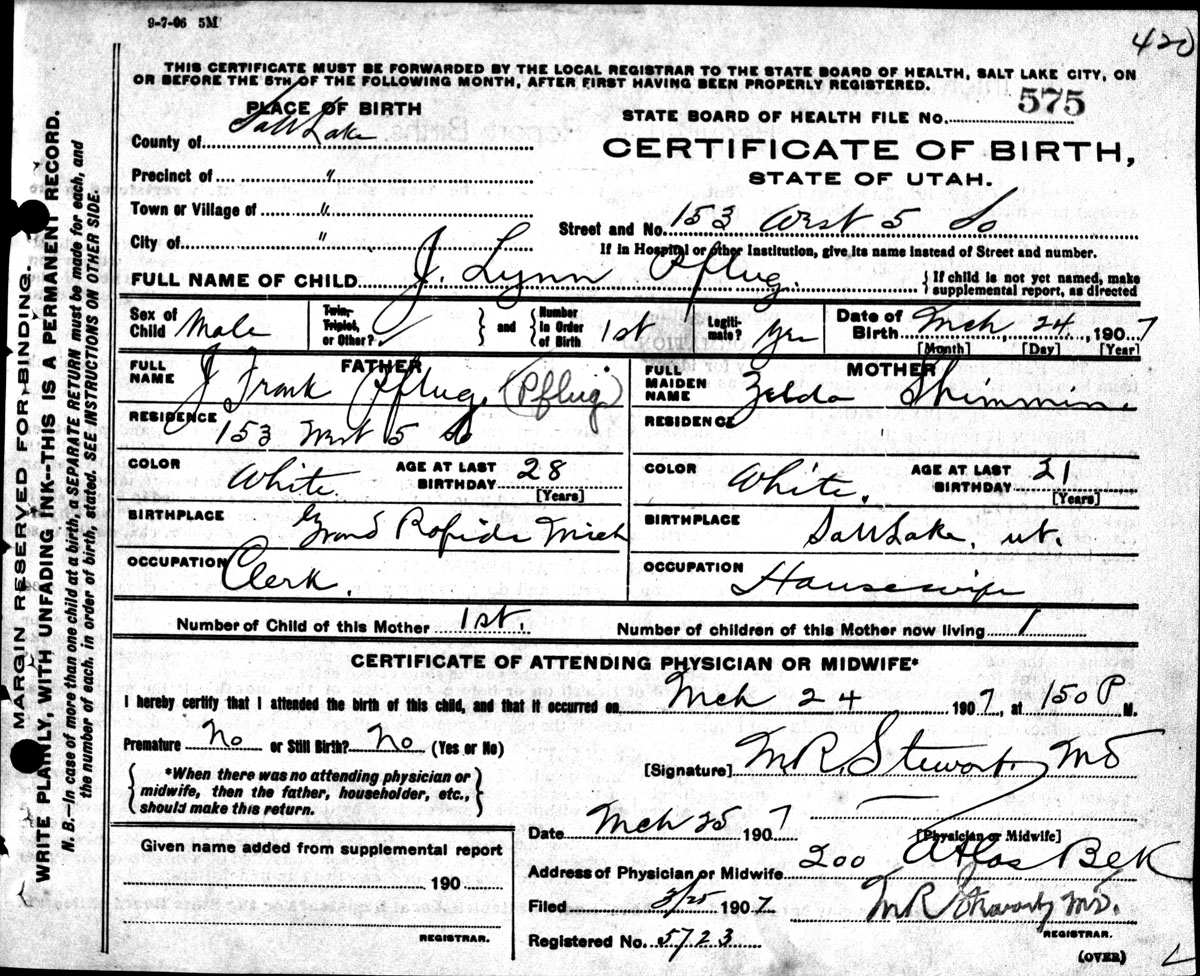 9-7-06 5M
420
THIS CERTIFICATE MUST BE FORWARDED BY THE LOCAL REGISTRAR TO THE STATE BOARD OF HEALTH, SALT LAKE CITY, ON
OR BEFORE THE 5TH OF THE FOLLOWING MONTH, AFTER FIRST HAVING BEEN PROPERLY REGISTERED.
PLACE OF BIRTH
STATE BOARD OF HEALTH FILE No. 575
County of Salt Lake
CERTIFICATE OF BIRTH,
STATE OF UTAH.
Precinct of "
Town or Village of "
Street and No. 153 West 5 So
City of "
If in Hospital or other Institution, give its name instead of Street and number.
FULL NAME OF CHILD J. Lynn Pflug. } If child is not yet named, make supplemental report, as directed
Sex of Child Male Twin, Triplet, or Other? / } and { Number in Order of Birth 1st Legiti- mate? Yes Date of Birth Mch 24, 1907
[Month] [Day] [Year]
FATHER
FULL NAME J Frank Pflug. (Pflug)
MOTHER
FULL MAIDEN NAME Zelda Shimmin.
RESIDENCE 153 West 5 So
RESIDENCE "
COLOR White. AGE AT LAST BIRTHDAY 28 [Years]
COLOR White. AGE AT LAST BIRTHDAY 21 [Years]
BIRTHPLACE Grand Rapids Mich
BIRTHPLACE Salt Lake, ut.
OCCUPATION Clerk.
OCCUPATION Housewife
Number of Child of this Mother 1st. Number of children of this Mother now living 1
CERTIFICATE OF ATTENDING PHYSICIAN OR MIDWIFE*
I hereby certify that I attended the birth of this child, and that it occurred on Mch 24 1907, at 150 P M.
Premature No or Still Birth? No (Yes or No)
[Signature] M.R. Stewart. MD
{ *When there was no attending physician or midwife, then the father, householder, etc., should make this return. }
[Physician or Midwife]
Date Mch 25 1907
Given name added from supplemental report
190
REGISTRAR.
Address of Physician or Midwife 200 Atlas Bek
Filed 3/25 1907 MR Stewart MD.
REGISTRAR.
Registered No. 5723
(OVER)
MARGIN RESERVED FOR BINDING.
WRITE PLANLY, WITH UNFADING INK--THIS IS A PERMANENT RECORD.
N. B.—In case of more than one child at a birth, a SEPARATE RETURN must be made for each, and
the number of each, in order of birth, stated. SEE INSTRUCTIONS ON OTHER SIDE.